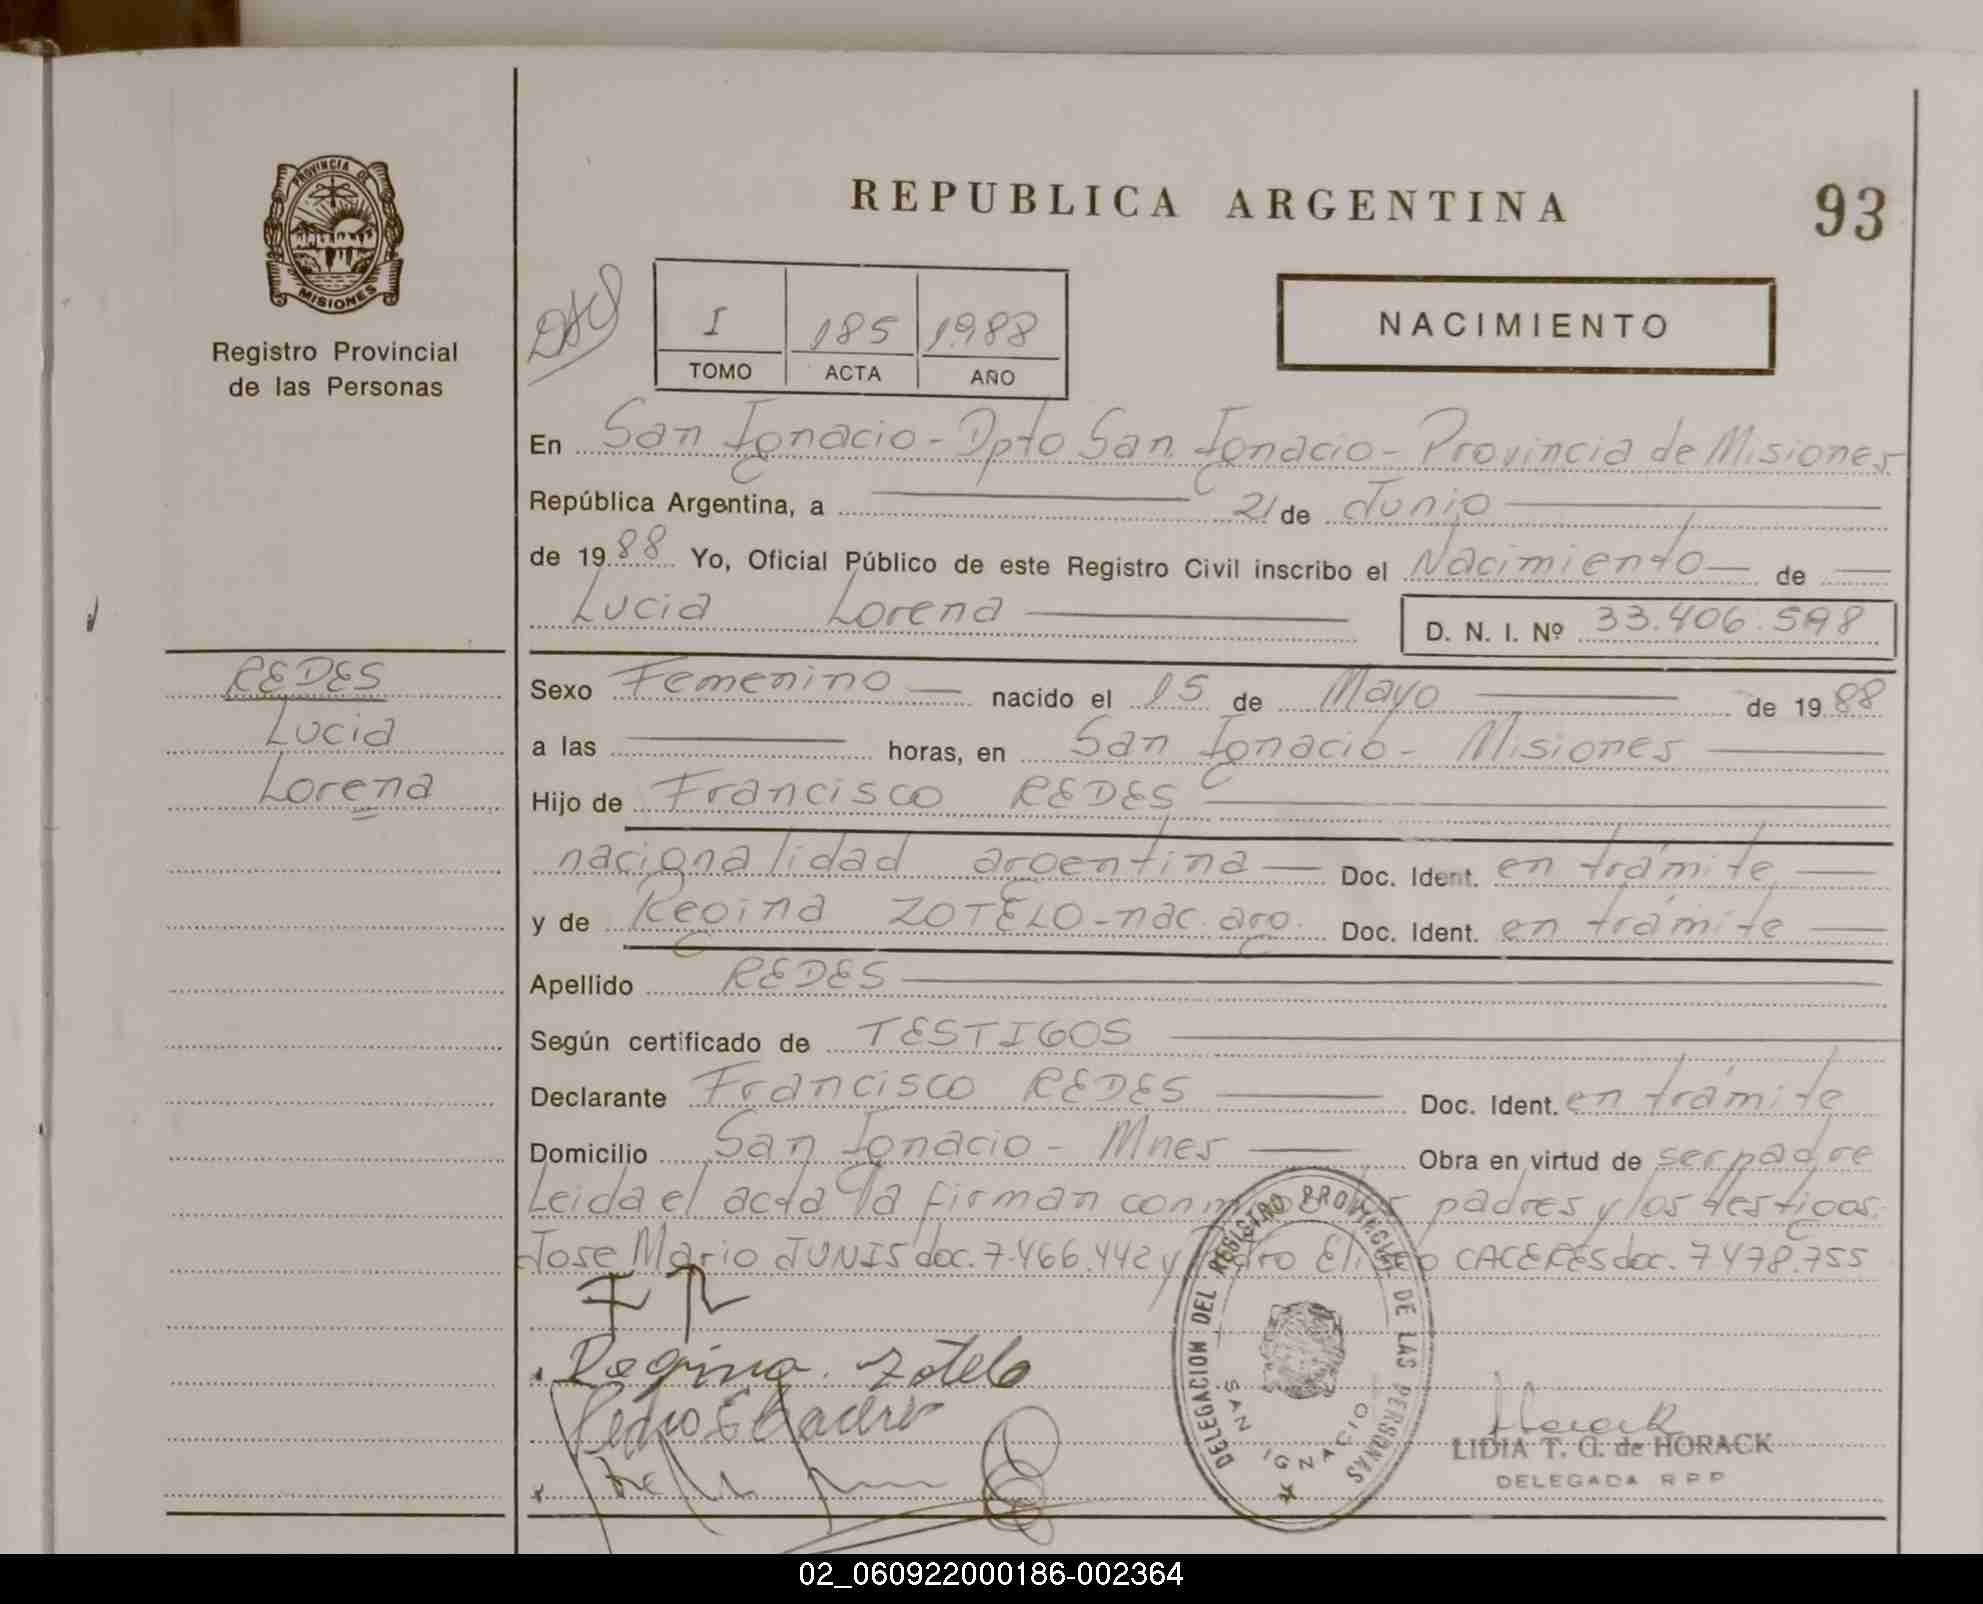 REPUBLICA ARGENTINA
93
PROVINCIA DE
MISIONES
Registro Provincial
de las Personas
I 185 1988
TOMO ACTA AÑO
NACIMIENTO
En San Ignacio - Dpto San Ignacio - Provincia de Misiones
República Argentina, a 21 de Junio
de 1988 Yo, Oficial Público de este Registro Civil inscribo el Nacimiento de
Lucia Lorena D. N. I. Nº 33.406.598
REDES
Lucia
Lorena
Sexo Femenino nacido el 15 de Mayo de 1988
a las horas, en San Ignacio - Misiones
Hijo de Francisco REDES
nacionalidad argentina Doc. Ident. en trámite
y de Regina ZOTELO - nac. arg. Doc. Ident. en trámite
Apellido REDES
Según certificado de TESTIGOS
Declarante Francisco REDES Doc. Ident. en trámite
Domicilio San Ignacio - Mnes Obra en virtud de ser padre
Leida el acta la firman padres y los testigos.
Jose Mario JUNIS doc. 7.466.442 y CACERES doc. 7478.755
Regina Zotelo
Pedro E Caceres
DELEGACION DEL REGISTRO PROVINCIAL DE LAS PERSONAS
SAN IGNACIO
LIDIA T. G. de HORACK
DELEGADA R P P
02_060922000186-002364